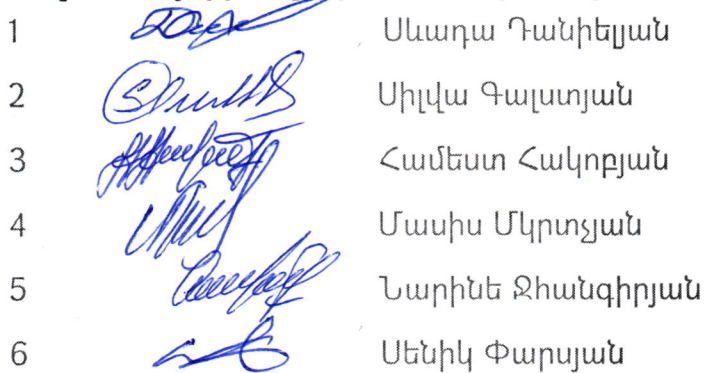 1 Սևադա Դանիելյան
2 Սիլվա Գալստյան
3 Համեստ Հակոբյան
4 Մասիս Մկրտչյան
5 Նարինե Ջհանգիրյան
6 Սենիկ Փարսյան